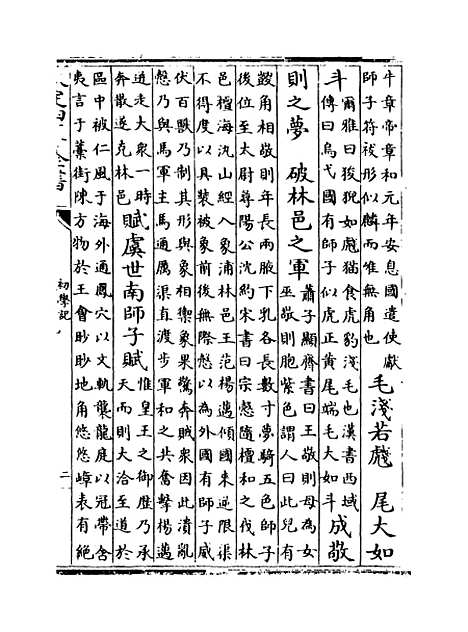 牛章帝章和元年安息國遣使獻
師子符祓形似麟而惟無角也
毛淺若虦　尾大如
斗
爾雅曰狻猊如虦猫食虎豹淺毛也漢書西域
傳曰烏弋國有師子似虎正黄尾端毛大如斗
成敬
則之夢　破林邑之軍
蕭子顯齊書曰王敬則母為女
巫敬則胞紫色謂人曰此兒有
鼓角相敬則年長兩腋下乳各長數寸夢騎五色師子
後位至太尉尋陽公沈約宋書曰宗慤隨檀和之伐林
邑檀海氿山經入象浦林邑王范楊邁傾國來逆限渠
不得度以具裝被象前後無際慤以為外國有師子威
伏百獸乃制其形與象相禦象果驚奔賊衆因此潰亂
慤乃與馬軍主馬通厲渠直渡步軍和之共奮擊楊邁
迸走大衆一時
奔散遂克林邑
賦虞世南師子賦
惟皇王之御歷乃承
天而則大洽至道於
區中被仁風于海外通鳳穴以文軌襲龍庭以冠帶舍
夷言于藁街陳方物於王會眇眇地角悠悠嶂表有絶
初學記
二